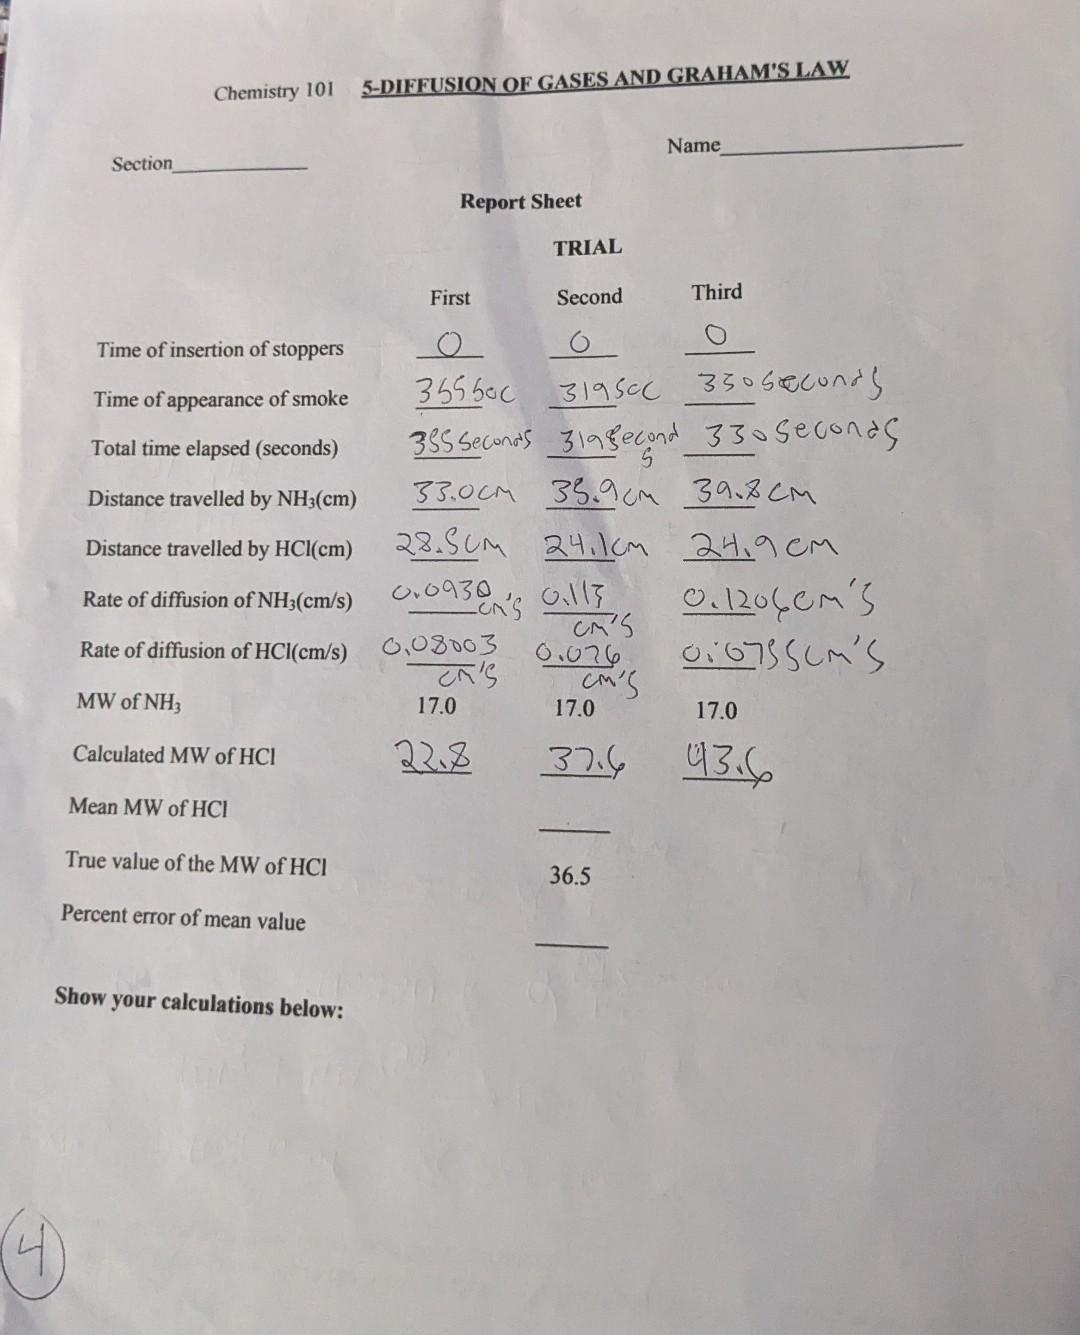 Chemistry 101 5-DIFFUSION OF GASES AND GRAHAM'S LAW
Section Name
Report Sheet
TRIAL
First Second Third
Time of insertion of stoppers 0 0 0
Time of appearance of smoke 355 sec 319 sec 330 seconds
Total time elapsed (seconds) 355 seconds 319 seconds 330 seconds
Distance travelled by NH₃(cm) 33.0cm 35.9cm 39.8cm
Distance travelled by HCl(cm) 28.5cm 24.1cm 24.9cm
Rate of diffusion of NH₃(cm/s) 0.0930 cm's 0.113 cm's 0.1206cm's
Rate of diffusion of HCl(cm/s) 0.08003 cm's 0.076 cm's 0.0755cm's
MW of NH₃ 17.0 17.0 17.0
Calculated MW of HCl 22.8 37.6 43.6
Mean MW of HCl
True value of the MW of HCl 36.5
Percent error of mean value
Show your calculations below:
4